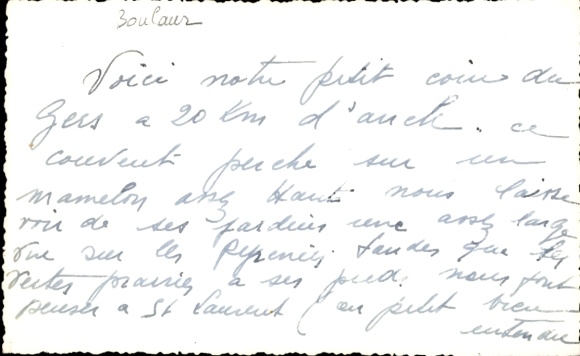 Boulaur
Voici notre petit coin du
Gers a 20 Km d'auch. ce
couvent perche sur un
mamelon assez haut nous laisse
voir de ses jardins une assez large
vue sur les Pyrenées tandis que les
vertes prairies a ses pieds nous font
penser a St Laurent (en petit bien
entendu